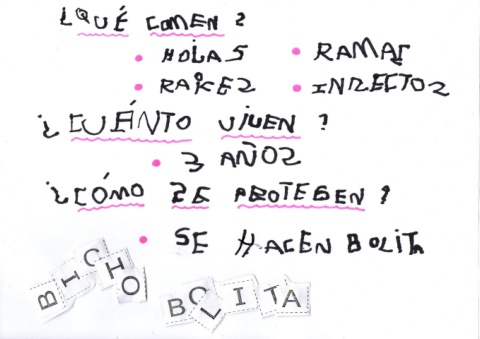 ¿QUÉ COMEN?
• HOLAS • RAMAS
• RAÍCEZ • INZECTOZ
¿CUÁNTO VIVEN?
• 3 AÑOZ
¿CÓMO ZE PROTEGEN?
• SE HACEN BOLITA
BICHO
BOLITA